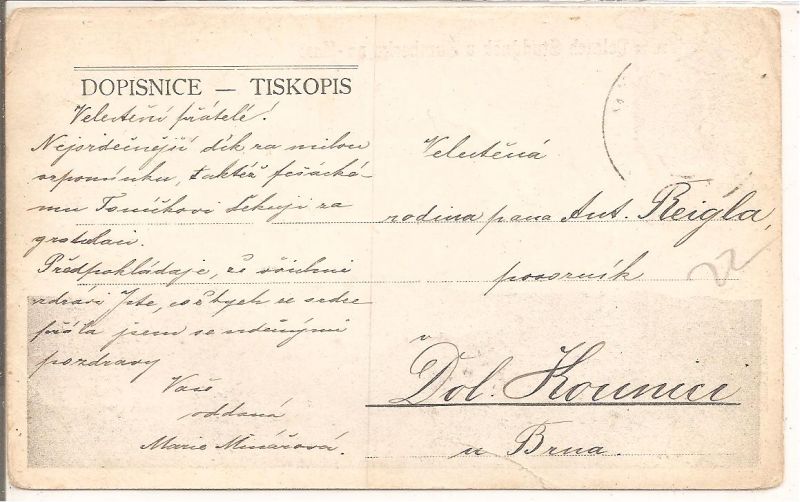 DOPISNICE — TISKOPIS
Velectění přátelé!
Nejsrdečnější dík za milou
vzpomínku, taktéž fešácké-
mu Toníčkovi děkuji za
gratulaci.
Předpokládaje, že všichni
zdrávi jste, což bych ze srdce
přála jsem se srdečnými
pozdravy
Vaše
oddaná
Marie
Velectěná
rodina pana Ant. Reigla,
v
Dol. Kounici
u Brna.
22